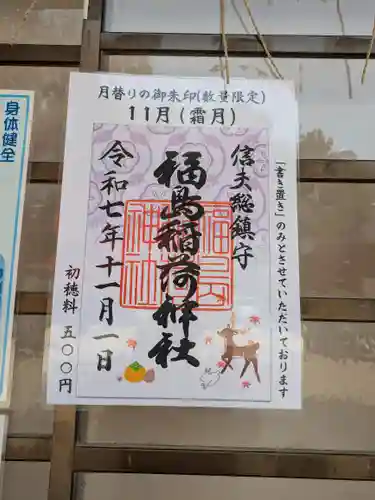 月替りの御朱印(数量限定)
11月(霜月)
信夫総鎮守
福島稲荷神社
令和七年十一月一日
「書き置き」のみとさせていただいております
初穂料 五〇〇円
身体健全